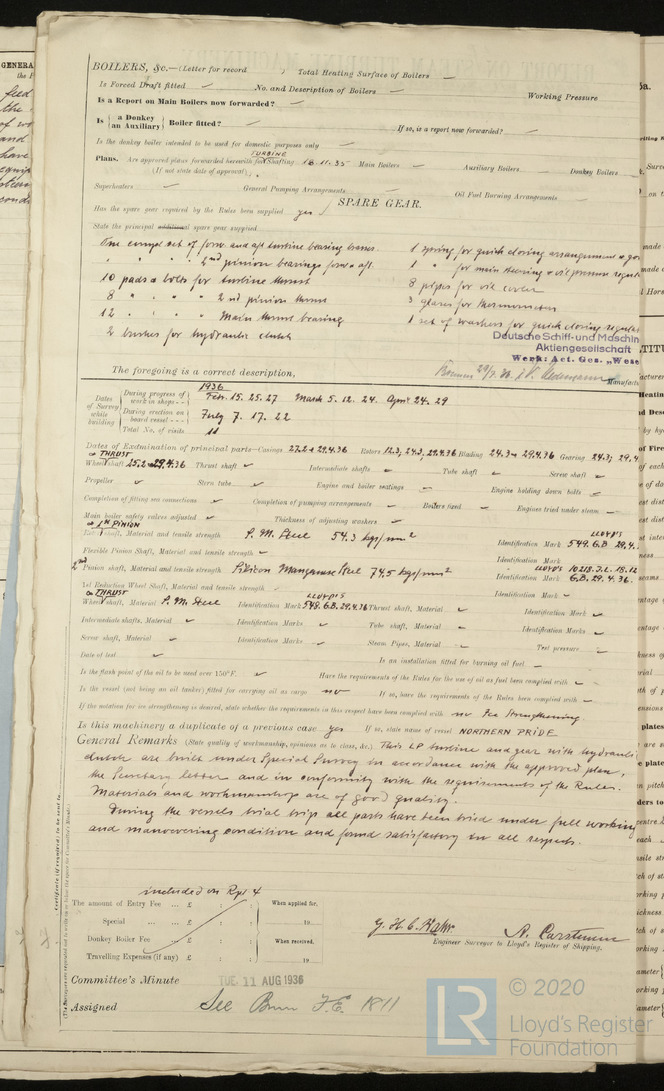 BOILERS, &c.—(Letter for record ) Total Heating Surface of Boilers
Is Forced Draft fitted No. and Description of Boilers Working Pressure
Is a Report on Main Boilers now forwarded?
Is { a Donkey an Auxiliary } Boiler fitted? If so, is a report now forwarded?
Is the donkey boiler intended to be used for domestic purposes only
TURBINE
Plans. Are approved plans forwarded herewith for Shafting 18.11.35 Main Boilers Auxiliary Boilers Donkey Boilers
(If not state date of approval)
Superheaters General Pumping Arrangements Oil Fuel Burning Arrangements
SPARE GEAR.
Has the spare gear required by the Rules been supplied yes
State the principal additional spare gear supplied
One set of forw and aft turbine bearing
" " " 2nd pinion bearings forw & aft.
10 pads & bolts for turbine thrust
8 " " " 2nd pinion thrust
12 " " " Main thrust bearing
2 brushes for hydraulic clutch
1 spring for quick closing arrangement
1 " for main steering & oil pressure
8 pipes for oil cooler
3 glasses for thermometer
1 set of washers for quick closing
Deutsche Schiff-und Maschin
Aktiengesellschaft
Werk: Act. Ges. „Wese
The foregoing is a correct description,
Manufactu
1936
Dates of Survey while building
During progress of work in shops Feb. 15. 25. 27 March 5. 12. 24 April 24. 29
During erection on board vessel July 7. 17. 22
Total No. of visits 11
Dates of Examination of principal parts—Casings 27.2 & 29.4.36 Rotors 12.3, 24.3, 29.4.36 Blading 24.3 & 29.4.36 Gearing 24.3, 29.4
& THRUST
Wheel shaft 25.2 & 29.4.36 Thrust shaft Intermediate shafts Tube shaft Screw shaft
Propeller Stern tube Engine and boiler seatings Engine holding down bolts
Completion of fitting sea connections Completion of pumping arrangements Boilers fixed Engines tried under steam
Main boiler safety valves adjusted Thickness of adjusting washers
& 1st PINION
Rotor shaft, Material and tensile strength S. M. Steel 54.3 kgs/mm² Identification Mark LLOYD'S 549. G.B. 29.4.
Flexible Pinion Shaft, Material and tensile strength Identification Mark
2nd Pinion shaft, Material and tensile strength Silicon Manganese Steel 74,5 kgs/mm² Identification Mark LLOYD'S 10218. J.L. 18.12
G.B. 29.4.36.
1st Reduction Wheel Shaft, Material and tensile strength Identification Mark
& THRUST
Wheel shaft, Material S. M. Steel Identification Mark LLOYD'S 549. G.B. 29.4.36 Thrust shaft, Material Identification Mark
Intermediate shafts, Material Identification Marks Tube shaft, Material Identification Marks
Screw shaft, Material Identification Marks Steam Pipes, Material Test pressure
Date of test Is an installation fitted for burning oil fuel
Is the flash point of the oil to be used over 150°F. Have the requirements of the Rules for the use of oil as fuel been complied with
Is the vessel (not being an oil tanker) fitted for carrying oil as cargo no If so, have the requirements of the Rules been complied with
If the notation for ice strengthening is desired, state whether the requirements in this respect have been complied with no Ice Strengthening.
Is this machinery a duplicate of a previous case yes If so, state name of vessel NORTHERN PRIDE
General Remarks (State quality of workmanship, opinions as to class, &c.) This LP turbine and gear with hydraulic
clutch are built under Special Survey in accordance with the approved plan,
the Secretary letter and in conformity with the requirements of the Rules.
Materials and workmanship are of good quality.
During the vessels trial trip all parts have been tried under full working
and manoeuvering condition and found satisfactory in all respects.
included on Rpt. 4
The amount of Entry Fee ... £ : : When applied for,
Special ... £ : : 19
Donkey Boiler Fee ... £ : : When received,
Travelling Expenses (if any) £ : : 19
Engineer Surveyor to Lloyd's Register of Shipping.
Committee's Minute TUE. 11 AUG 1936
Assigned See Bmn F.E. 1811
© 2020
LR
Lloyd's Register
Foundation